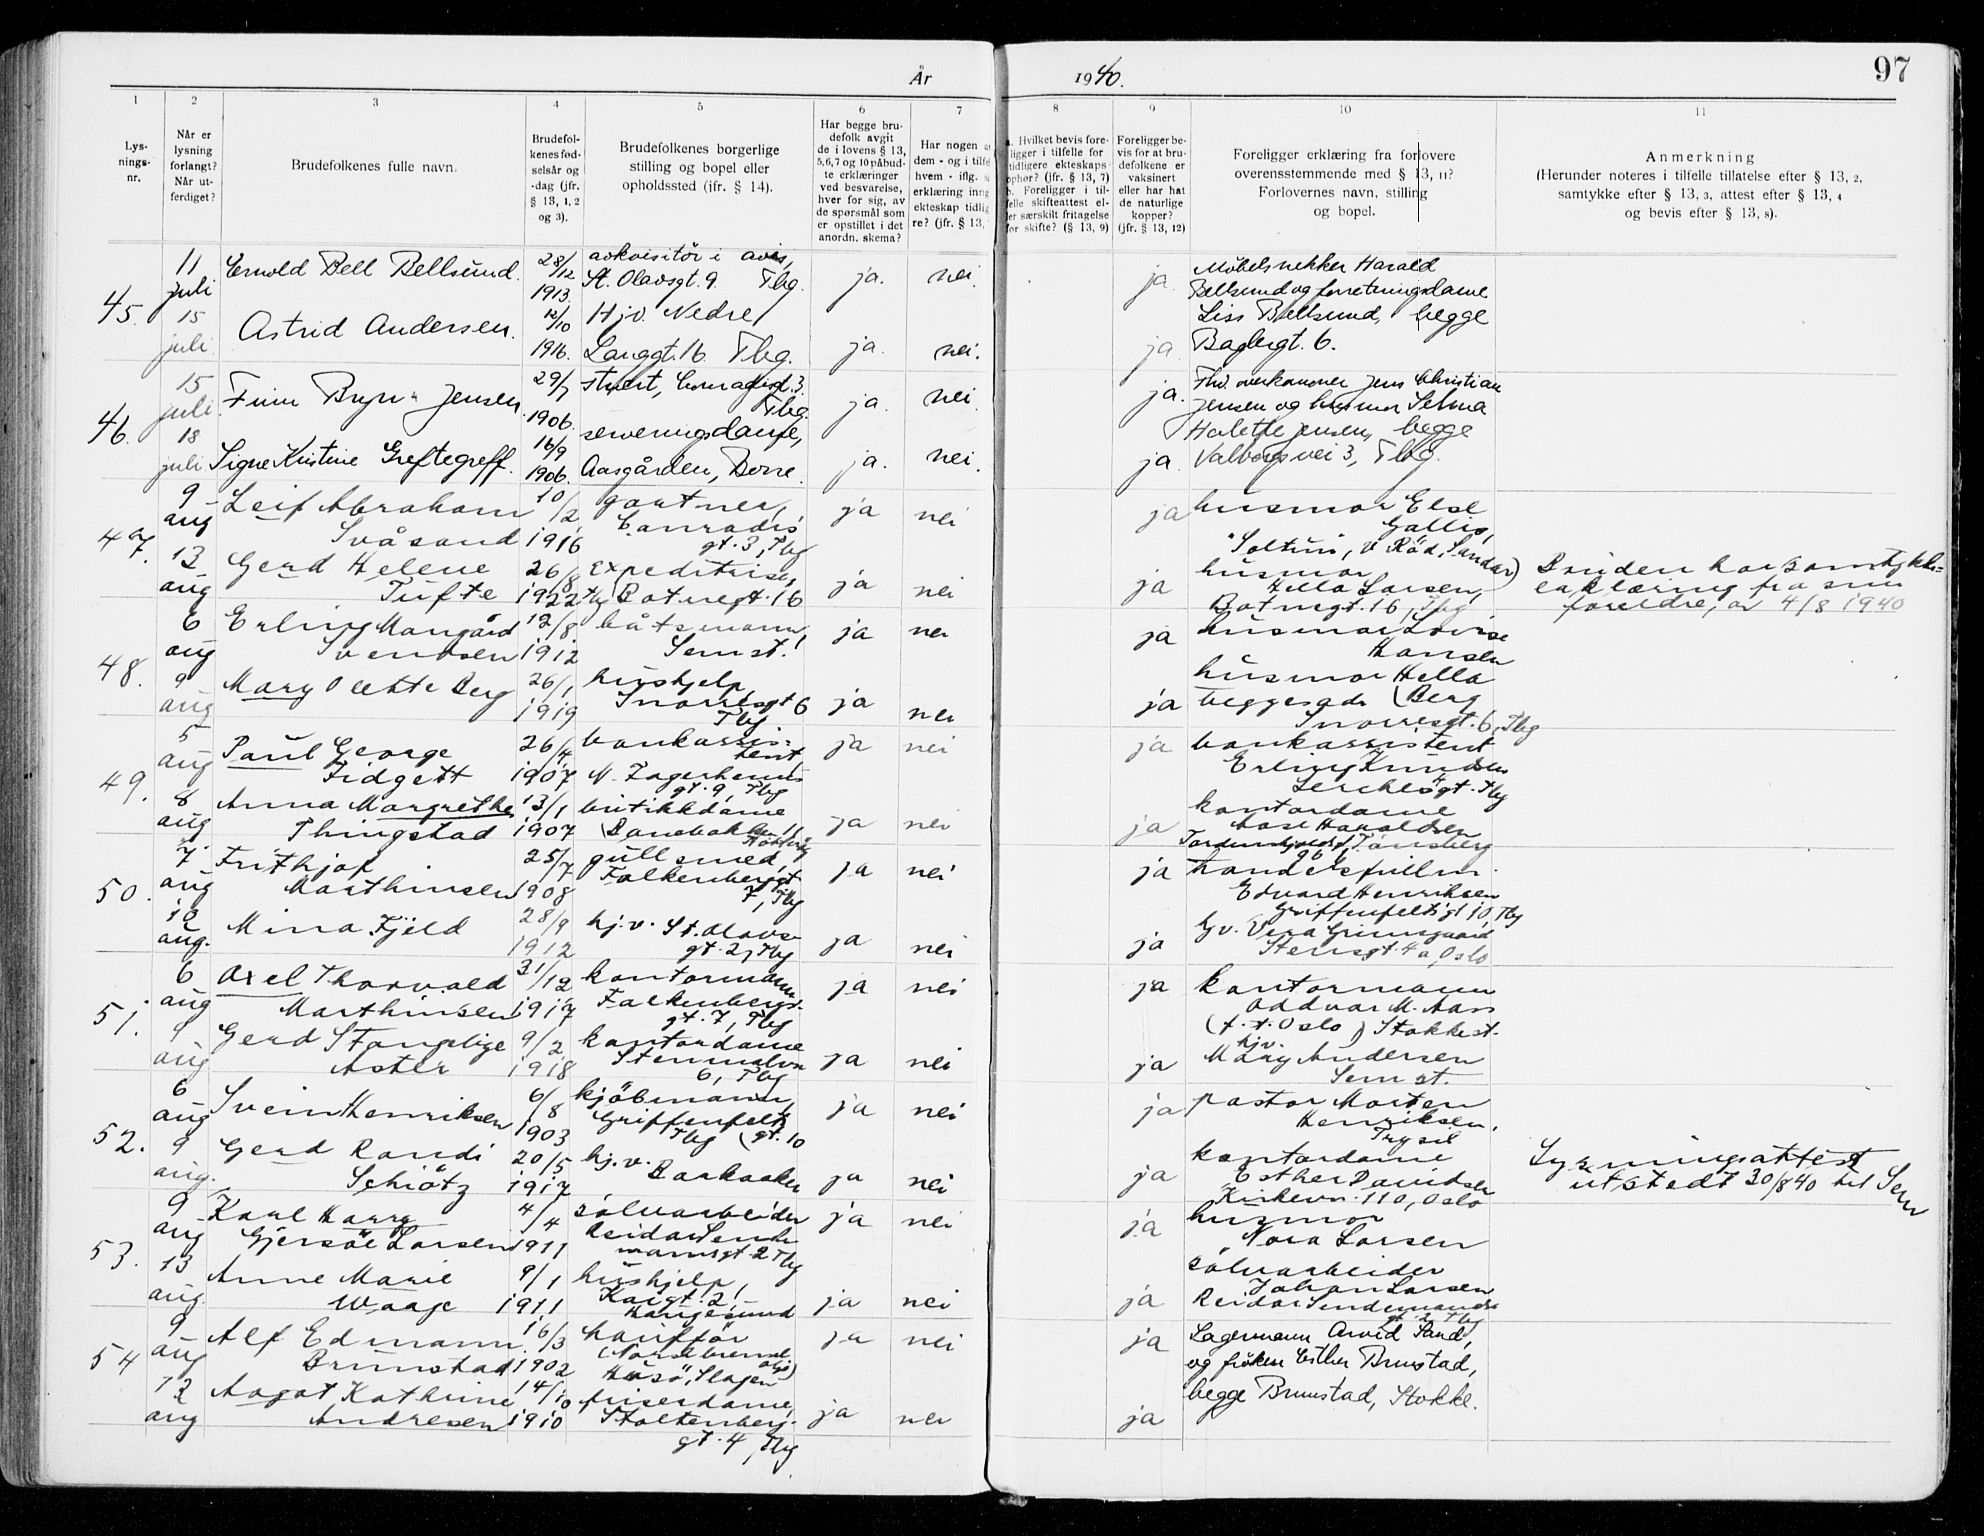 År 1940.
97
1 2 3 4 5 6 7 8 9 10 11
Lysningsnr.
Når er lysning forlangt? Når utferdiget?
Brudefolkenes fulle navn.
Brudefolkenes fødselsår og -dag (jfr. § 13, 1, 2 og 3).
Brudefolkenes borgerlige stilling og bopel eller opholdssted (jfr. § 14).
Har begge brudefolk avgit de i lovens § 13, 5,6,7 og 10 påbudte erklæringer ved besvarelse, hver for sig, av de spørsmål som er opstillet i det anordn. skema?
Har nogen a
dem - og i tilfe
hvem - iflg. s
erklæring inng
ekteskap tidlig
re? (jfr. § 13,
a. Hvilket bevis foreligger i tilfelle for tidligere ekteskaps ophør? (jfr. § 13, 7)
b. Foreligger i tilfelle skifteattest eller særskilt fritagelse for skifte? (§ 13, 9)
Foreligger bevis for at brudefolkene er vaksinert eller har hat de naturlige kopper? (jfr. § 13, 12)
Foreligger erklæring fra forlovere overensstemmende med § 13, 11? Forlovernes navn, stilling og bopel.
Anmerkning
(Herunder noteres i tilfelle tillatelse efter § 13, 2, samtykke efter § 13, 3, attest efter § 13, 4 og bevis efter § 13, 8).
45.
11 juli
Ernold Bell Bellsund.
28/12 1913.
avkvisitør i avis,
St. Olavsgt. 9. Tbg.
ja. nei. ja
Møbelsnekker Harald
Bellsund og forretningsdame
Liss Bellsund, begge
Baglergt. 6.
15 juli
Astrid Andersen.
12/10 1916.
Hjv. Nedre
Langgt. 16 Tbg.
ja. nei. ja
46.
15 juli
Finn Bryn-Jensen
29/7 1906.
stuert, Conradisgt. 3.
Tbg.
ja. nei. ja.
Fhv. overkanoner Jens Christian
Jensen og husmor Selma
Halette Jensen, begge
Valbergsvei 3, Tbg.
18 juli
Signe Kristine Greftegreff.
16/9 1906.
serveringsdame,
Aasgården, Borre.
ja. nei. ja.
47.
9 aug
Leif Abraham
Svåsand
10/2 1916
gartner,
Conradis
gt. 3, Tbg
ja nei ja
husmor Else
Gallis,
"Soltun", v Råd, Sandar)
13 aug
Gerd Helene
Tufte
26/8 1922
Expeditrise,
Tbg Botnegt. 16
ja nei ja
husmor
Hella Larsen,
Botnegt. 16, Tbg
Bruden har samtykke=
erklæring fra sine
foreldre, av 4/8 1940
48.
6 aug
Erling Mangård
Svendsen
12/8 1912
båtsmann,
Sem st.
ja nei ja
husmor Lovise
Hansen
9 aug
Mary Olette Berg
26/1 1919
hushjelp
Snorresgt 6
Tbg
ja nei ja
husmor Hella
Berg
Snorresgt. 6, Tbg
49.
5 aug
Paul George
Fidgett
26/4 1907
bankassis=
tent,
N. Fagerheims
gt. 9, Tbg
ja nei ja
bankassistent
Erling Knudsen
Lerchesgt. Tbg
8 aug
Anna Margrethe
Thingstad
13/1 1907
butikkdame
ja nei ja
kontordame
Aase Haraldsen
Tønsberg
50.
7 aug
Frithjof
Marthinsen
25/7 1908
gullsmed,
Falkenbergsgt
7, Tbg
ja nei ja
handelsfullm.
Edvard Henriksen
Griffenfeltsgt 10, Tbg
10 aug.
Mina Fjeld
28/9 1912
hj.v. St. Olavs
gt. 2, Tbg
ja nei ja
hjv. Vera Grimsgaard
Stensgt. 4a, Oslo
51.
6 aug
Axel Thorvald
Marthinsen
31/12 1917
kontormann
Falkenbergs-
gt. 7, Tbg
ja nei ja
kontormann
Oddvar M. Aass
(f. t. Oslo) Stokke st.
9 aug
Gerd Stangebye
Aster
9/2 1918
kontordame
Stenmalvn
6, Tbg
ja nei ja
hjv.
Mary Andersen
Sem st.
52.
6 aug
Svein Henriksen
6/8 1903
kjöbmann,
Griffenfelts
Tbg (gt. 10
ja nei ja
pastor Morten
Henriksen,
Trysil
9 aug.
Gerd Randi
Schiötz
20/5 1917
hj.v.
Barkaaker
ja nei ja
kontordame
Esther Davidsen
Kirkevn. 110, Oslo
Lysningsattest
utstedt 30/8 40 til Sem
53.
9 aug
Karl Harry
Gjersöe Larsen
4/4 1911
sølvarbeider
Reidar Sende
mannsgt. 2 Tbg
ja nei ja
husmor
Nora Larsen
13 aug.
Anne Marie
Waage
9/1 1911
hushjelp,
Kaigt. 2,
Haugesund
ja nei ja
sølvarbeider
Johan Larsen
Reidar Sendemanns
gt. 2 Tbg
54
9 aug
Alf Edmann
Brunstad
16/3 1902
chauffør
Husö, Slagen
ja nei ja
Lagermann Arvid Sand,
og frøken Esther Brunstad,
begge Brunstad, Stokke.
12 aug
Aagot Kathrine
Andresen
14/10 1910
friserdame
Stoltenberg-
gt. 4, Tbg
ja nei ja